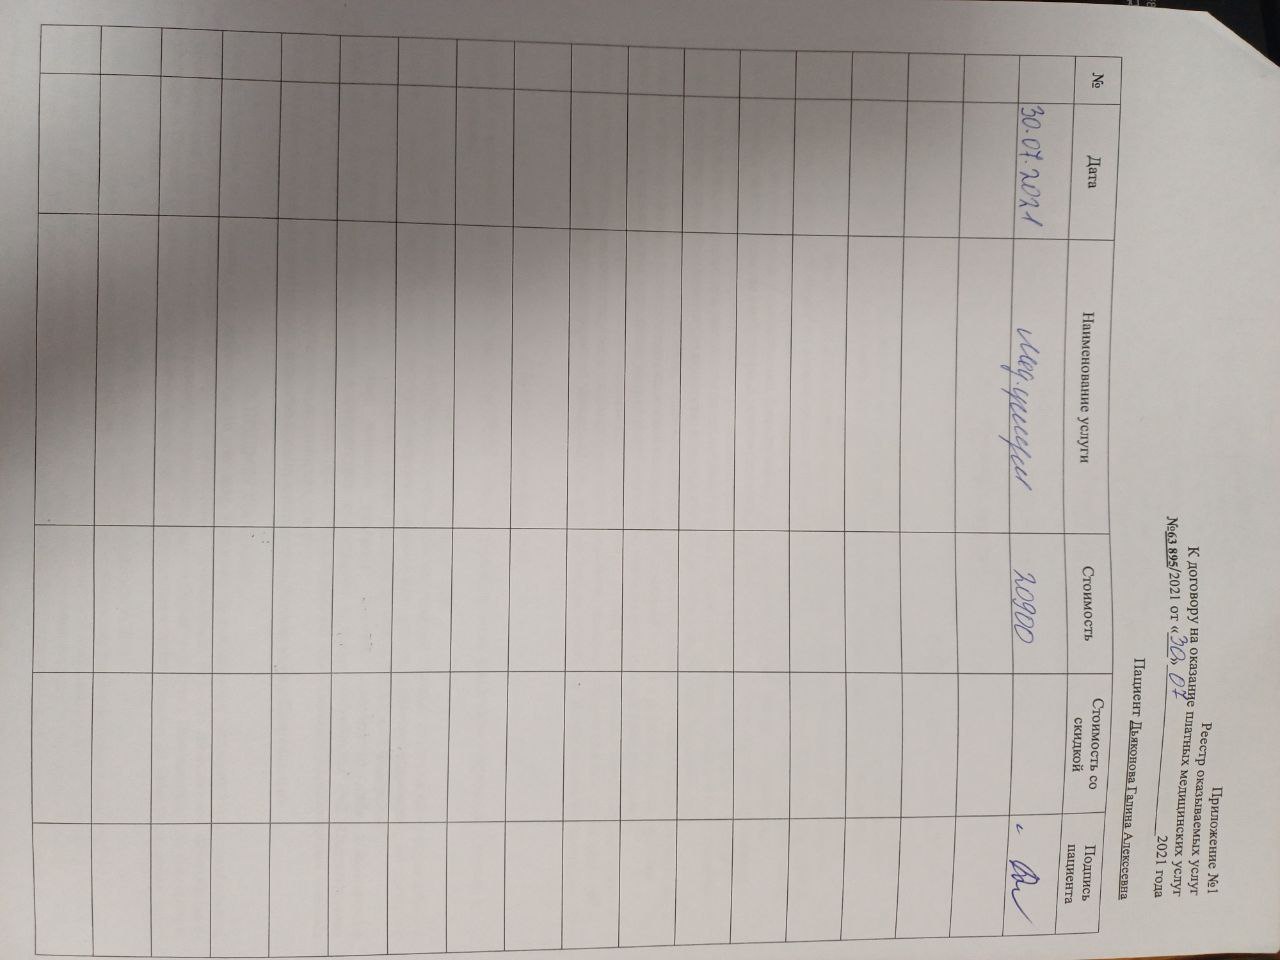 Приложение №1
Реестр оказываемых услуг
К договору на оказание платных медицинских услуг
№63 895/2021 от «30» 07 2021 года
Пациент Дьяконова Галина Алексеевна
№ Дата Наименование услуги Стоимость Стоимость со скидкой Подпись пациента
30.07.2021 Мед. услуги 20900